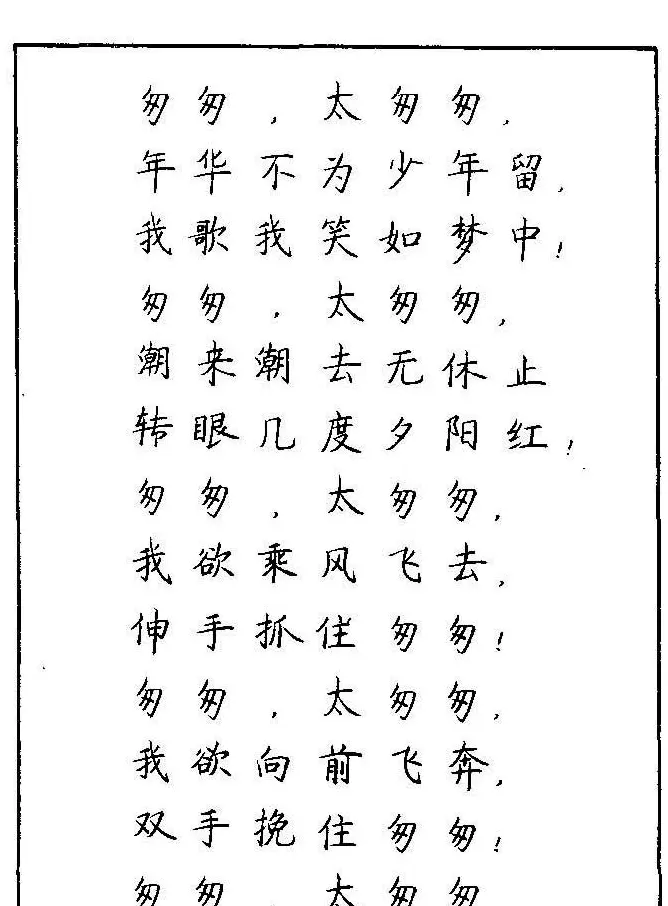 匆匆，太匆匆，
年华不为少年留，
我歌我笑如梦中！
匆匆，太匆匆，
潮来潮去无休止
转眼几度夕阳红！
匆匆，太匆匆，
我欲乘风飞去，
伸手抓住匆匆！
匆匆，太匆匆，
我欲向前飞奔，
双手挽住匆匆！
匆匆，太匆匆